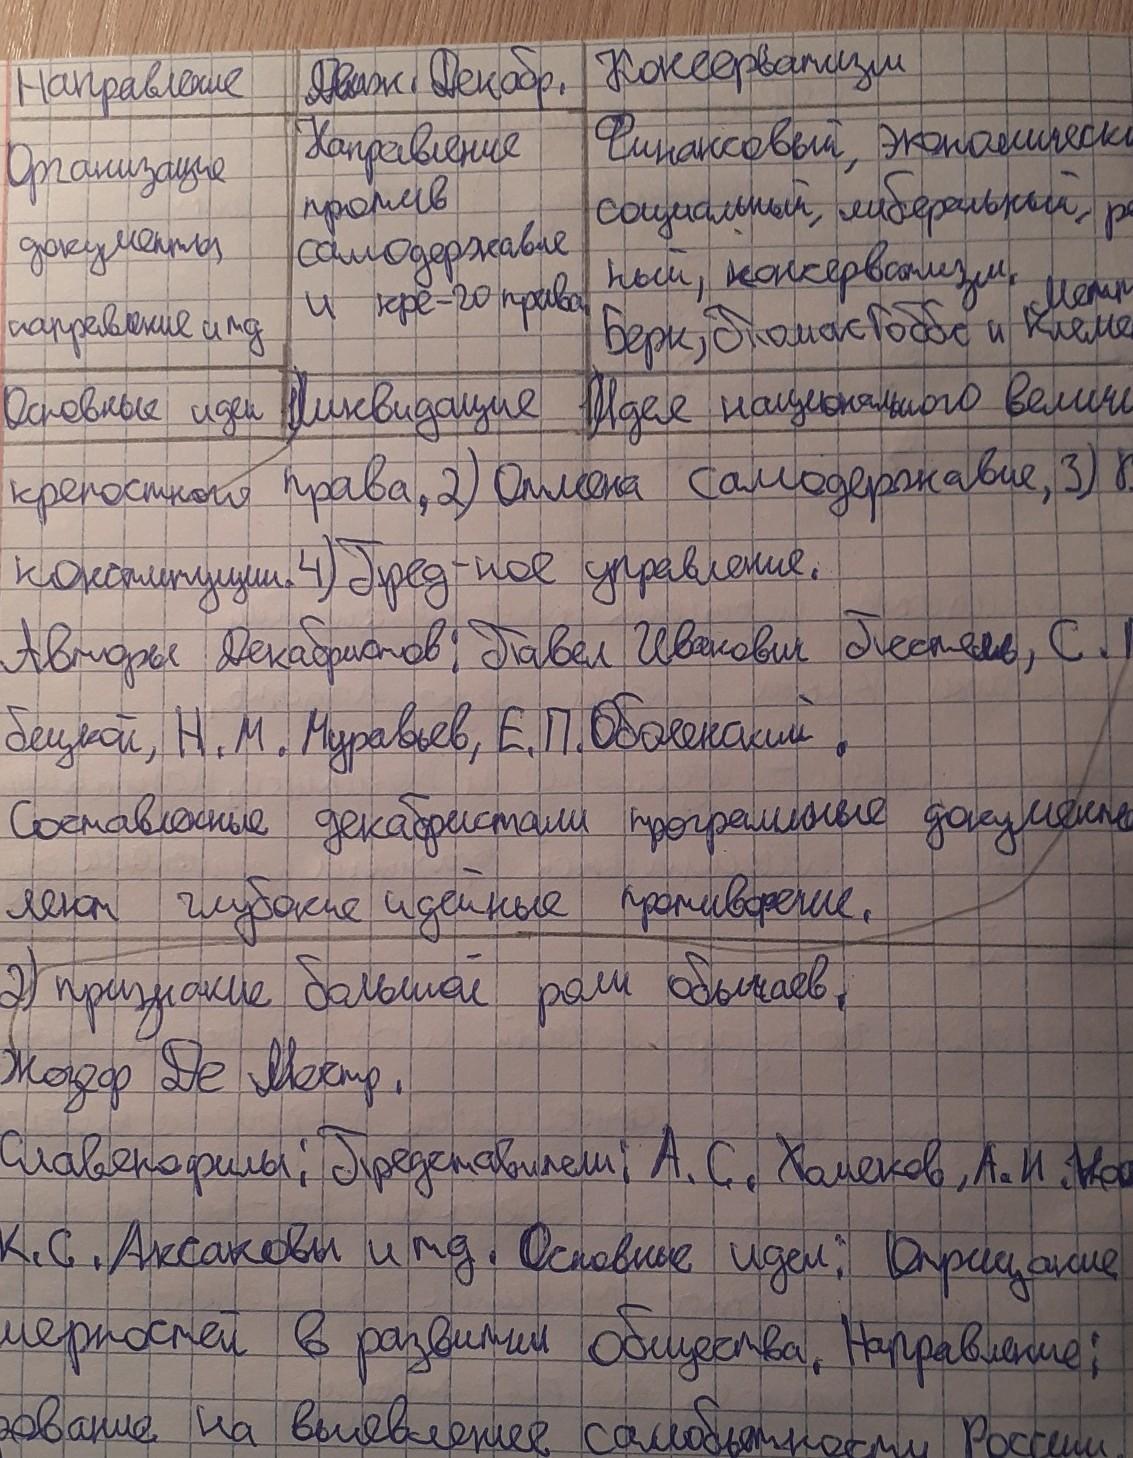 Направление Движ. Декабр. Консерватизм
Организацие Направление Финансовый, экономически
документы, против социальный, либеральный,
направление итд самодержавие ный, консерватизм.
и кре-го права. Берк, Томас Гоббс и Клеме
Основные идеи 1) Ликвидацие 1) Идее национального величи
крепостного права, 2) Отмена самодержавие, 3)
конституции. 4) Пред-ное управление.
Авторы Декабристов: Павел Иванович Пестель, С.
бецкой, Н. М. Муравьев, Е. П. Оболенский.
Составленные декабристами програмные документы
леют глубокие идейные противоречие.
2) признание большой роли обычаев.
Жозеф Де Местр.
Славенофилы: Представители: А. С. Хомеков, А. И. Ко
К. С. Аксаковы итд. Основные идеи: Отрицание
мерностей в развитии общества. Направление:
зование на выевление самобытности России.